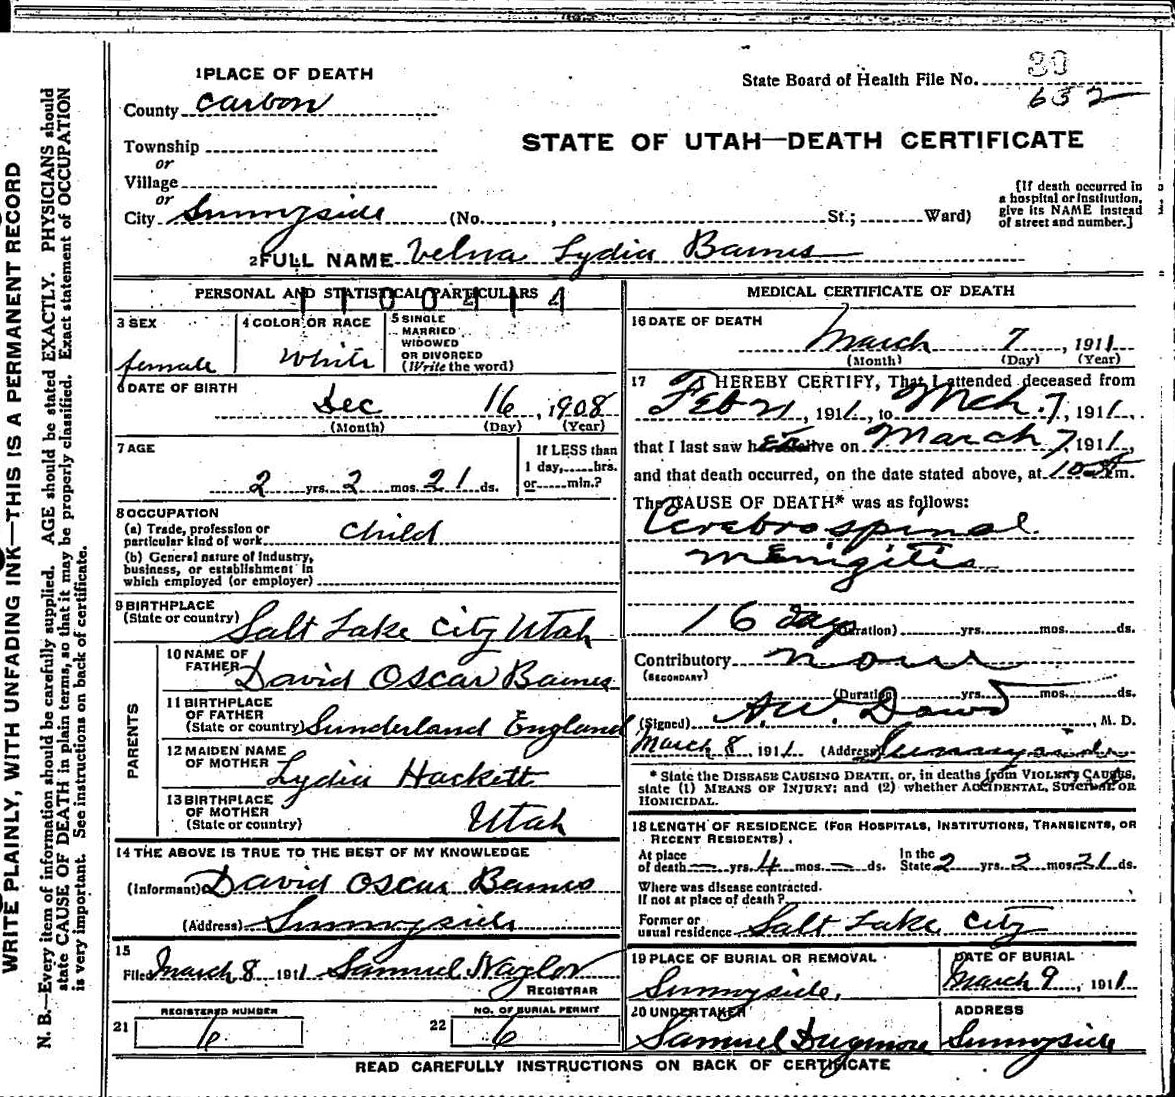 1 PLACE OF DEATH
State Board of Health File No. 30
632
County Carbon
STATE OF UTAH—DEATH CERTIFICATE
Township
or
Village
or
City Sunnyside (No. , St.; Ward)
[If death occurred in
a hospital or institution,
give its NAME instead
of street and number.]
2 FULL NAME Velna Lydia Barnes
PERSONAL AND STATISTICAL PARTICULARS
1100414
3 SEX
female
4 COLOR OR RACE
White
5 SINGLE
MARRIED
WIDOWED
OR DIVORCED
(Write the word)
6 DATE OF BIRTH
Dec 16, 1908
(Month) (Day) (Year)
7 AGE
2 yrs. 2 mos. 21 ds.
If LESS than
1 day, hrs.
or min.?
8 OCCUPATION
(a) Trade, profession or
particular kind of work child
(b) General nature of industry,
business, or establishment in
which employed (or employer)
9 BIRTHPLACE
(State or country) Salt Lake City Utah
PARENTS
10 NAME OF
FATHER David Oscar Barnes
11 BIRTHPLACE
OF FATHER
(State or country) Sunderland England
12 MAIDEN NAME
OF MOTHER Lydia Hackett
13 BIRTHPLACE
OF MOTHER
(State or country) Utah
14 THE ABOVE IS TRUE TO THE BEST OF MY KNOWLEDGE
(Informant) David Oscar Barnes
(Address) Sunnyside
15
Filed March 8 1911 Samuel Naylor
REGISTRAR
21 REGISTERED NUMBER
6
22 NO. OF BURIAL PERMIT
6
MEDICAL CERTIFICATE OF DEATH
16 DATE OF DEATH
March 7, 1911
(Month) (Day) (Year)
17 I HEREBY CERTIFY, That I attended deceased from
Feb 21, 1911, to Mch. 7, 1911.
that I last saw her alive on March 7, 1911
and that death occurred, on the date stated above, at 10 m.
The CAUSE OF DEATH* was as follows:
Cerebro spinal
Menigitis
16 days
(Duration) yrs. mos. ds.
Contributory none
(SECONDARY)
(Duration) yrs. mos. ds.
(Signed) A.W. Dowd, M. D.
March 8, 1911 (Address) Sunnyside
* State the DISEASE CAUSING DEATH, or, in deaths from VIOLENT CAUSES,
state (1) MEANS OF INJURY; and (2) whether ACCIDENTAL, SUICIDAL OR
HOMICIDAL.
18 LENGTH OF RESIDENCE (FOR HOSPITALS, INSTITUTIONS, TRANSIENTS, OR
RECENT RESIDENTS).
At place
of death — yrs. 4 mos. — ds. In the
State 2 yrs. 2 mos. 21 ds.
Where was disease contracted.
If not at place of death?
Former or
usual residence Salt Lake City
19 PLACE OF BURIAL OR REMOVAL
Sunnyside,
DATE OF BURIAL
March 9, 1911
20 UNDERTAKER
Samuel Dugmore
ADDRESS
Sunnyside
READ CAREFULLY INSTRUCTIONS ON BACK OF CERTIFICATE
WRITE PLAINLY, WITH UNFADING INK—THIS IS A PERMANENT RECORD
N. B.—Every item of information should be carefully supplied. AGE should be stated EXACTLY. PHYSICIANS should
state CAUSE OF DEATH in plain terms, so that it may be properly classified. Exact statement of OCCUPATION
is very important. See instructions on back of certificate.